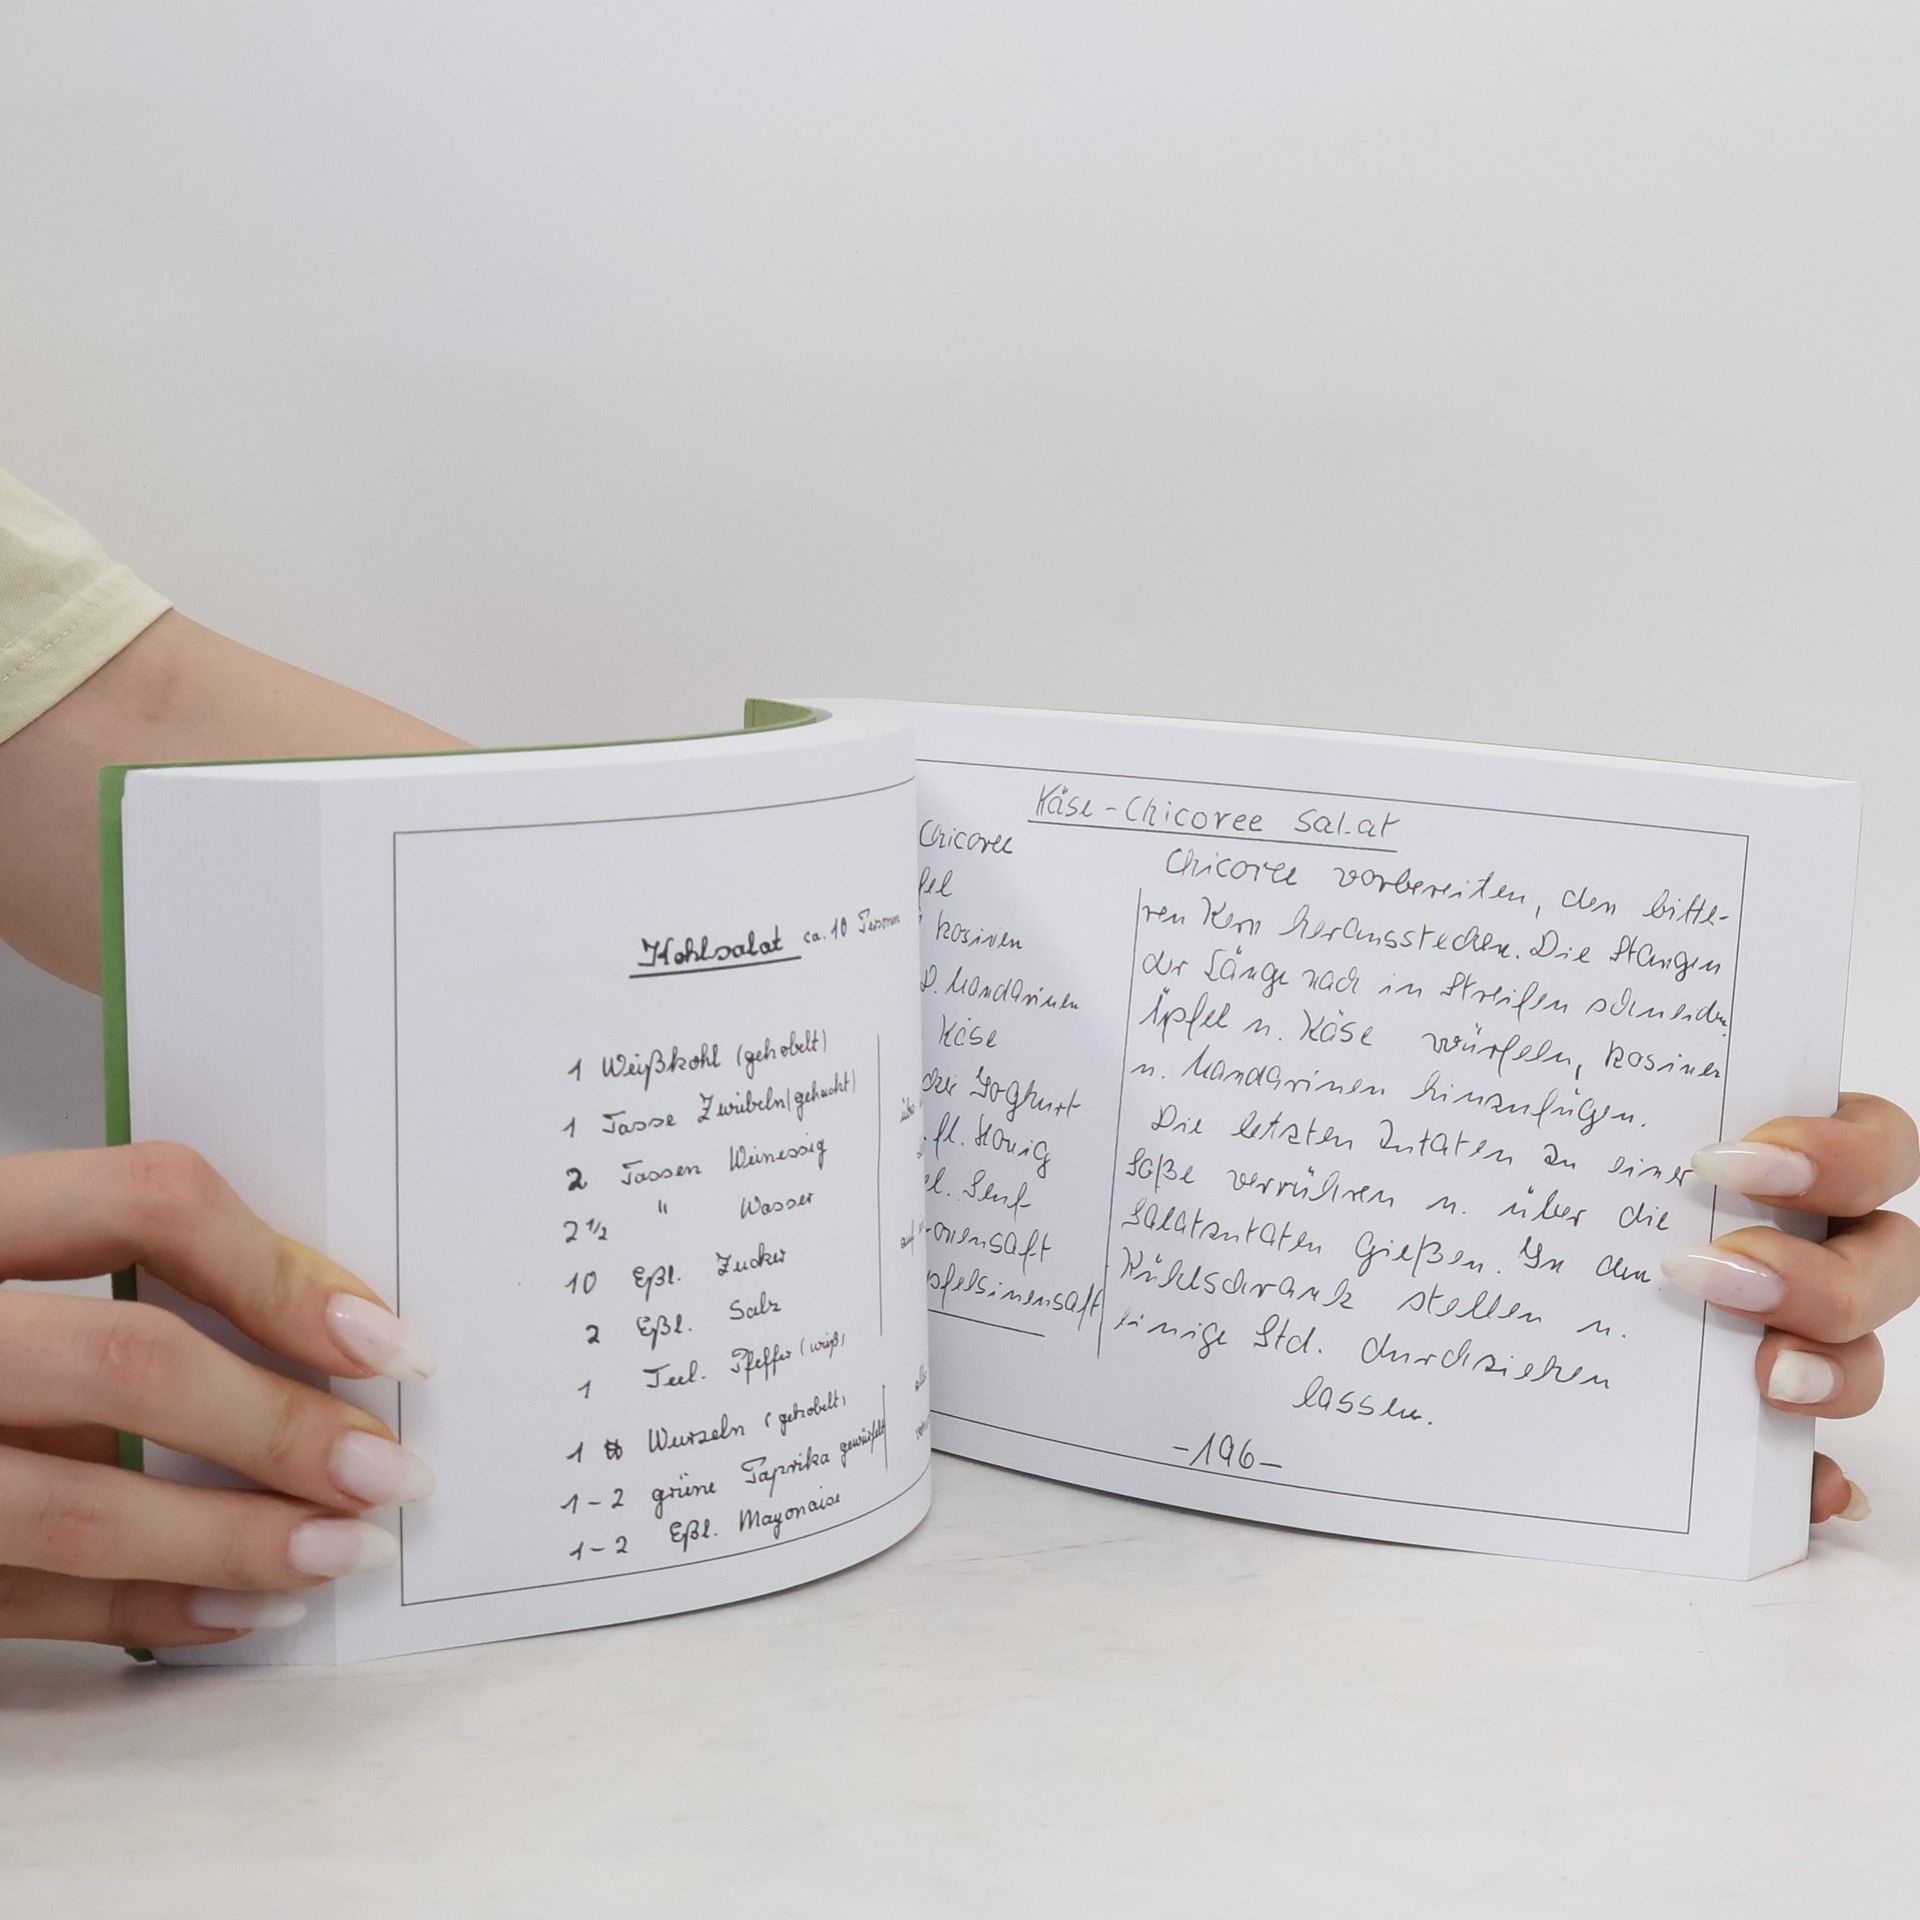 Kohlsalat ca. 10 Personen
1 Weißkohl (gehobelt)
1 Tasse Zwiebeln (gehackt)
2 Tassen Weinessig
2 1/2 " Wasser
10 Eßl. Zucker
2 Eßl. Salz
1 Teel. Pfeffer (weiß)
1 Wurzeln (gehobelt)
1-2 grüne Paprika gewürfelt
1-2 Eßl. Mayonaise
Käse-Chicoree Salat
Chicoree
fel
Rosinen
D. Mandarinen
Käse
der Joghurt
fl. Honig
el. Senf
onensaft
pfelsinensaft
Chicoree vorbereiten, den bitte-
ren Kern herausstechen. Die Stangen
der Länge nach in Streifen schneiden.
Äpfel u. Käse würfeln, Rosinen
u. Mandarinen hinzufügen.
Die letzten Zutaten zu einer
Soße verrühren u. über die
Salatzutaten gießen. In den
Kühlschrank stellen u.
einige Std. durchziehen
lassen.
-196-